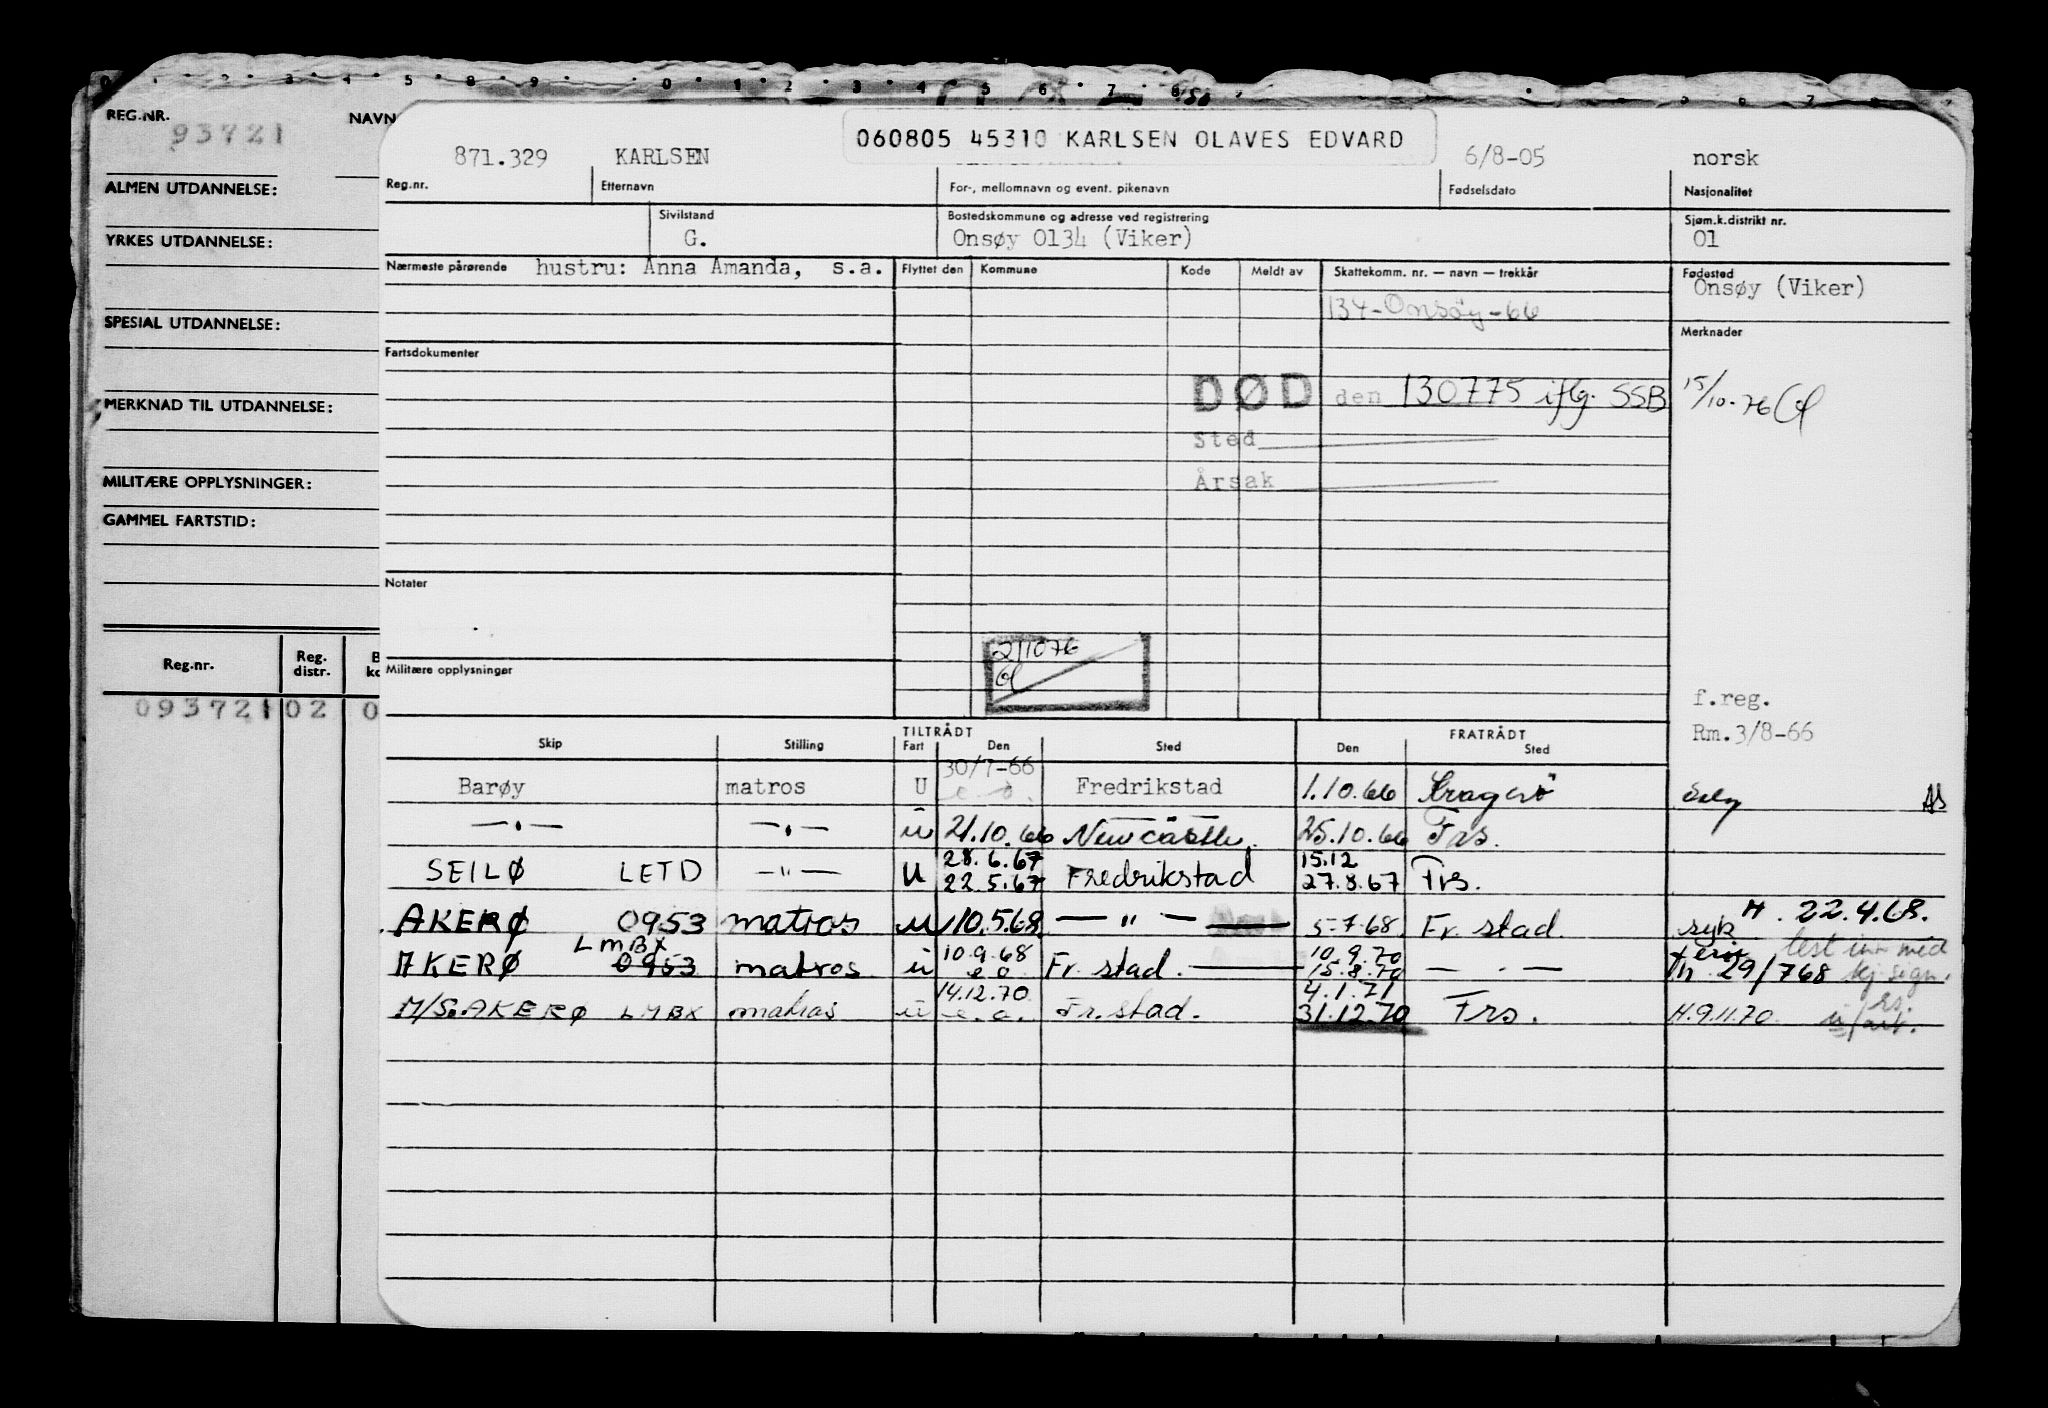 REG.NR. NAVN
93721
060805 45310 KARLSEN OLAVES EDVARD
871.329 KARLSEN 6/8-05 norsk
Reg.nr. Etternavn For-, mellomnavn og event. pikenavn Fødselsdato Nasjonalitet
ALMEN UTDANNELSE:
Sivilstand Bostedskommune og adresse ved registrering Sjøm.k.distrikt nr.
G. Onsøy 0134 (Viker) 01
YRKES UTDANNELSE:
Nærmeste pårørende hustru: Anna Amanda, s.a. Flyttet den Kommune Kode Meldt av Skattekomm. nr. — navn — trekkår Fødested
Onsøy (Viker)
134-Onsøy-66
SPESIAL UTDANNELSE:
Merknader
Fartsdokumenter
DØD den 130775 iflg. SSB 15/10-76
MERKNAD TIL UTDANNELSE:
Sted
MILITÆRE OPPLYSNINGER:
Årsak
GAMMEL FARTSTID:
Notater
211076
Militære opplysninger
Reg.nr. Reg. distr.
f.reg.
093721 02 0
Rm.3/8-66
TILTRÅDT FRATRÅDT
Skip Stilling Fart Den Sted Den Sted
30/7-66
Barøy matros U e.o. Fredrikstad 1.10.66 Kragerø
—"— —"— u 21.10.66 Newcastle. 25.10.66 Frs.
28.6.67 15.12
SEILØ LETD —"— U 22.5.67 Fredrikstad 27.8.67 Frs.
AKERØ 0953 matros u 10.5.68 —"— 5-7.68 Fr. stad. syk H. 22.4.68.
LMBX 10.9.68 10.9.70
AKERØ 0953 matros u e o Fr. stad. 15.8.70 —"— 29/768
14.12.70 4.1.71
M/S AKERØ LMBX matros u e.o. Fr.stad. 31.12.70 Frs. H.9.11.70